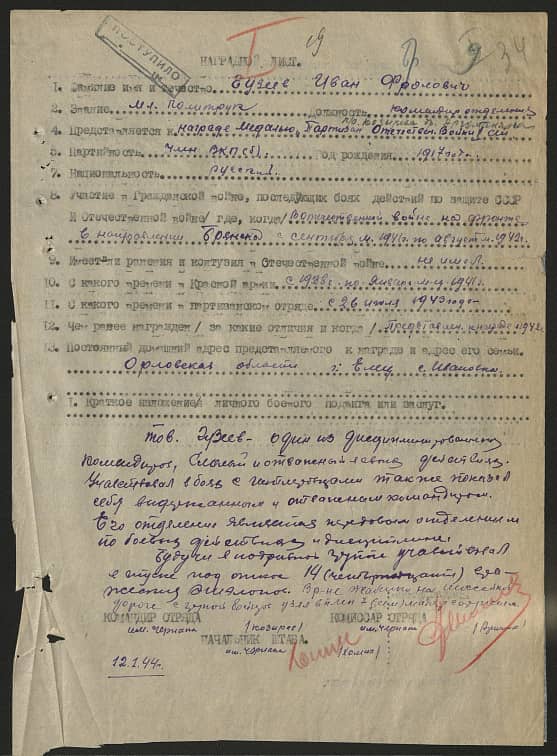 ПОСТУПИЛО
I 19 34
НАГРАДНОЙ ЛИСТ.
1. Фамилия имя и отчество. Бузеев Иван Фролович
2. Звание Мл. Политрук Должность Командир отделения
4. Представляется к награде Медалью, Партизан Отечествен. Войны I ст
5. Партийность Член ВКП(б) Год рождения 1917 год
7. Национальность русский.
8. Участие в Гражданской войне, последующих боях действий по защите СССР
И Отечественной войне/ где, когда/ В отечественной войне на фронте
в направлении Брянска с сентября м. 1941г. по август м. 1942г.
9. Имеет-ли ранения и контузия в Отечественной войне. не имел.
10. С какого времени в Красной армии. с 1938г. по Январь м-ц 1941г.
11. С какого времени в партизанском отряде. с 26 июля 1943 года
12. Чем ранее награжден/ за какие отличия и когда/ Представлен
13. Постоянный домашний адрес представляемого к награде и адрес его семьи.
Орловская область г. Елец с. Ивановка.
1. Краткое изложение личного боевого подвига или заслуг.
тов. Бузеев - один из дисциплинированных
командиров, Смелый и отважный в боевых действиях.
Участвовал в боях с также показал
себя выдержанным и отважным командиром.
Его отделение является передовым отделением
по боевым действиям и дисциплине.
Будучи в подрывной группе участвовал
в спуске под откос 14 (четырнадцати)
эшелонов. на шоссейной
дороге с группой бойцов
КОМАНДИР ОТРЯДА КОМИССАР ОТРЯДА
им. Чапаева (Козырев) им. Чапаева
НАЧАЛЬНИК ШТАБА.
им. Чапаева (Хомич)
12.1.44г.